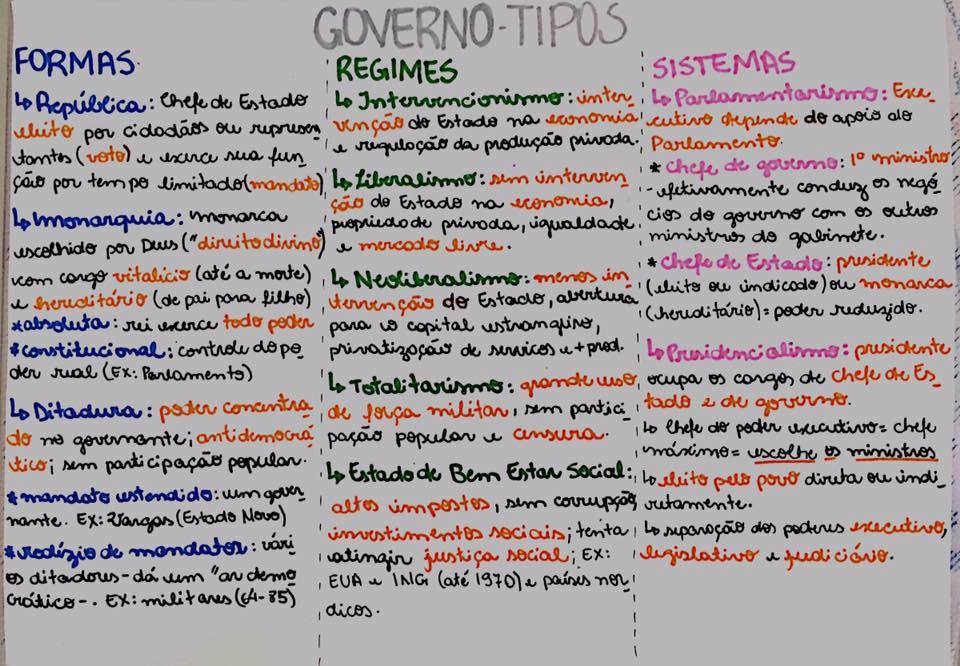 GOVERNO-TIPOS
FORMAS
↳ República: Chefe de Estado
eleito por cidadãos ou represen
tantes (voto) e exerce sua fun
ção por tempo limitado (mandato)
↳ Monarquia: monarca
escolhido por Deus ("direito divino")
com cargo vitalício (até a morte)
e hereditário (de pai para filho)
*absoluta: rei exerce todo poder
*constitucional: controle do po
der real (EX: Parlamento)
↳ Ditadura: poder concentra
do no governante; antidemocrá
tico; sem participação popular.
*mandato estendido: um gover
nante. EX: Vargas (Estado Novo)
*rodízio de mandator: vári
os ditadores - dá um "ar demo
crático-. EX: militares (64-85)
REGIMES
↳ Intervencionismo: inter
venção do Estado na economia
e regulação da produção privada.
↳ Liberalismo: sem interven
ção do Estado na economia,
propriedade privada, igualdade
e mercado livre.
↳ Neoliberalismo: menos in
tervenção do Estado, abertura
para o capital estrangeiro,
privatização de servicos e + prod.
↳ Totalitarismo: grande uso
de força militar, sem partici
pação popular e censura.
↳ Estado de Bem Estar Social:
altos impostos, sem corrupção,
investimentos sociais; tenta
atingir justiça social; EX:
EUA e ING (até 1970) e países nór
dicos.
SISTEMAS
↳ Parlamentarismo: Exe
cutivo depende do apoio do
Parlamento.
* Chefe de governo: 1º ministro
- efetivamente conduz os negó
cios do governo com os outros
ministros do gabinete.
* Chefe de Estado: presidente
(eleito ou indicado) ou monarca
(hereditário) = poder reduzido.
↳ Presidencialismo: presidente
ocupa os cargos de chefe de Es
tado e de governo.
↳ Chefe do poder executivo = chefe
máximo = escolhe os ministros
↳ eleito pelo povo direta ou indi
retamente.
↳ separação dos poderes executivo,
legislativo e judiciário.